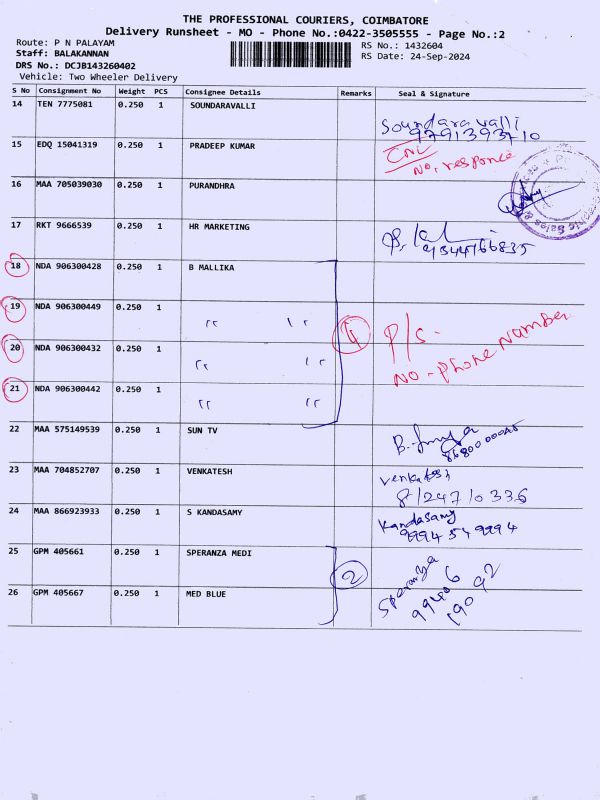 THE PROFESSIONAL COURIERS, COIMBATORE
Delivery Runsheet - MO - Phone No.:0422-3505555 - Page No.:2
Route: P N PALAYAM
Staff: BALAKANNAN
DRS No.: DCJB143260402
Vehicle: Two Wheeler Delivery
RS No.: 1432604
RS Date: 24-Sep-2024
S No Consignment No Weight PCS Consignee Details Remarks Seal & Signature
14 TEN 7775081 0.250 1 SOUNDARAVALLI
Soundaravalli
9791393710
15 EDQ 15041319 0.250 1 PRADEEP KUMAR
No, responce
16 MAA 705039030 0.250 1 PURANDHRA
17 RKT 9666539 0.250 1 HR MARKETING
9344766835
18 NDA 906300428 0.250 1 B MALLIKA
19 NDA 906300449 0.250 1 " "
20 NDA 906300432 0.250 1 " "
21 NDA 906300442 0.250 1 " "
4 P/S.
No - phone Number
22 MAA 575149539 0.250 1 SUN TV
23 MAA 704852707 0.250 1 VENKATESH
8124710336
24 MAA 866923933 0.250 1 S KANDASAMY
Kandasamy
9994 54 9994
25 GPM 405661 0.250 1 SPERANZA MEDI
2
Speranza
99406
190 92
26 GPM 405667 0.250 1 MED BLUE